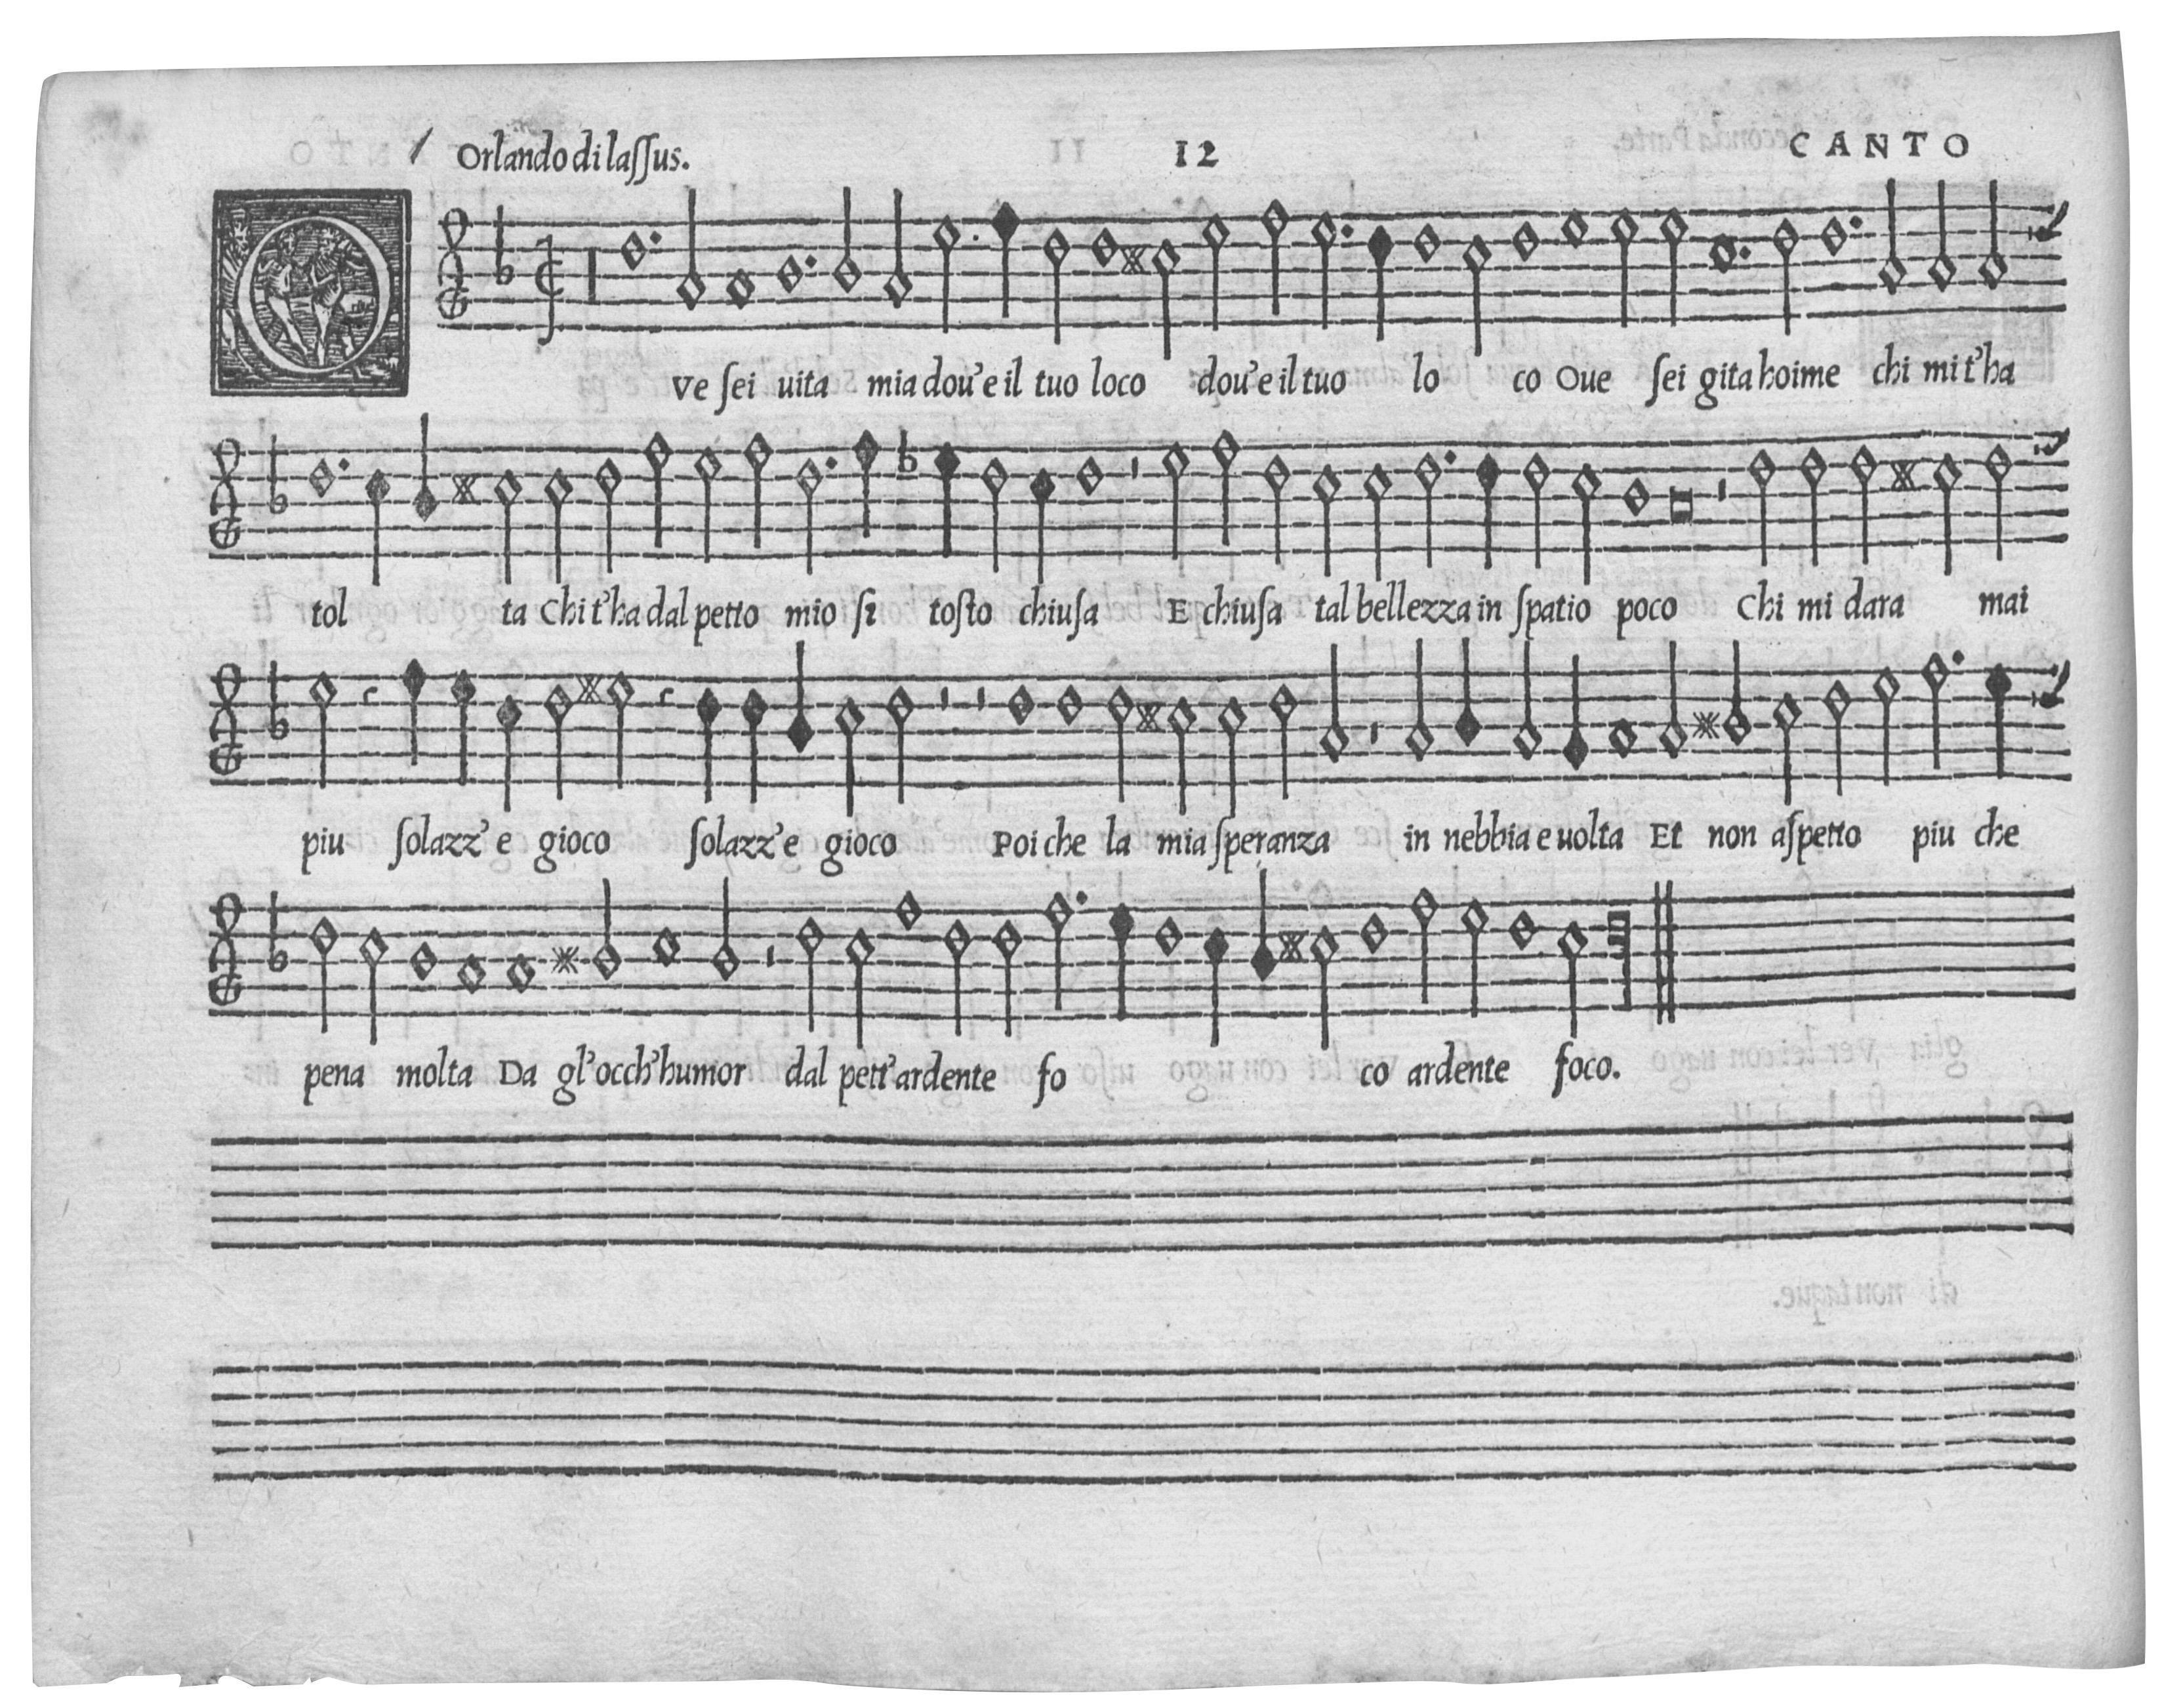 Orlando di laſſus. 12 CANTO
O
Ve ſei uita mia dou'e il tuo loco dou'e il tuo lo co Oue ſei gita hoime chi mi t'ha
tol ta Chi t'ha dal petto mio ſi toſto chiuſa E chiuſa tal bellezza in ſpatio poco Chi mi dara mai
piu ſolazz' e gioco ſolazz' e gioco Poi che la mia ſperanza in nebbia e uolta Et non aſpetto piu che
pena molta Da gl'occh'humor dal pett'ardente fo co ardente foco.